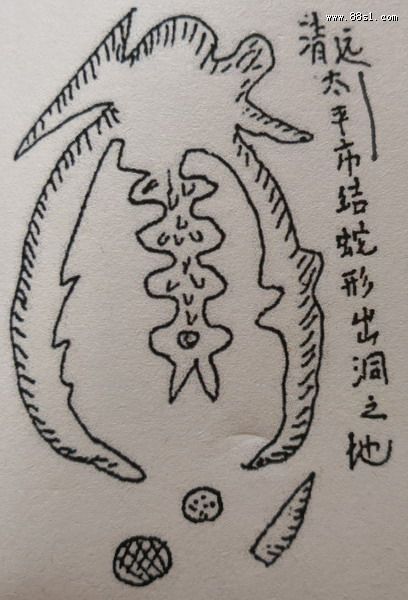 www.88s1.com
清远
太平市结蛇形出洞之地